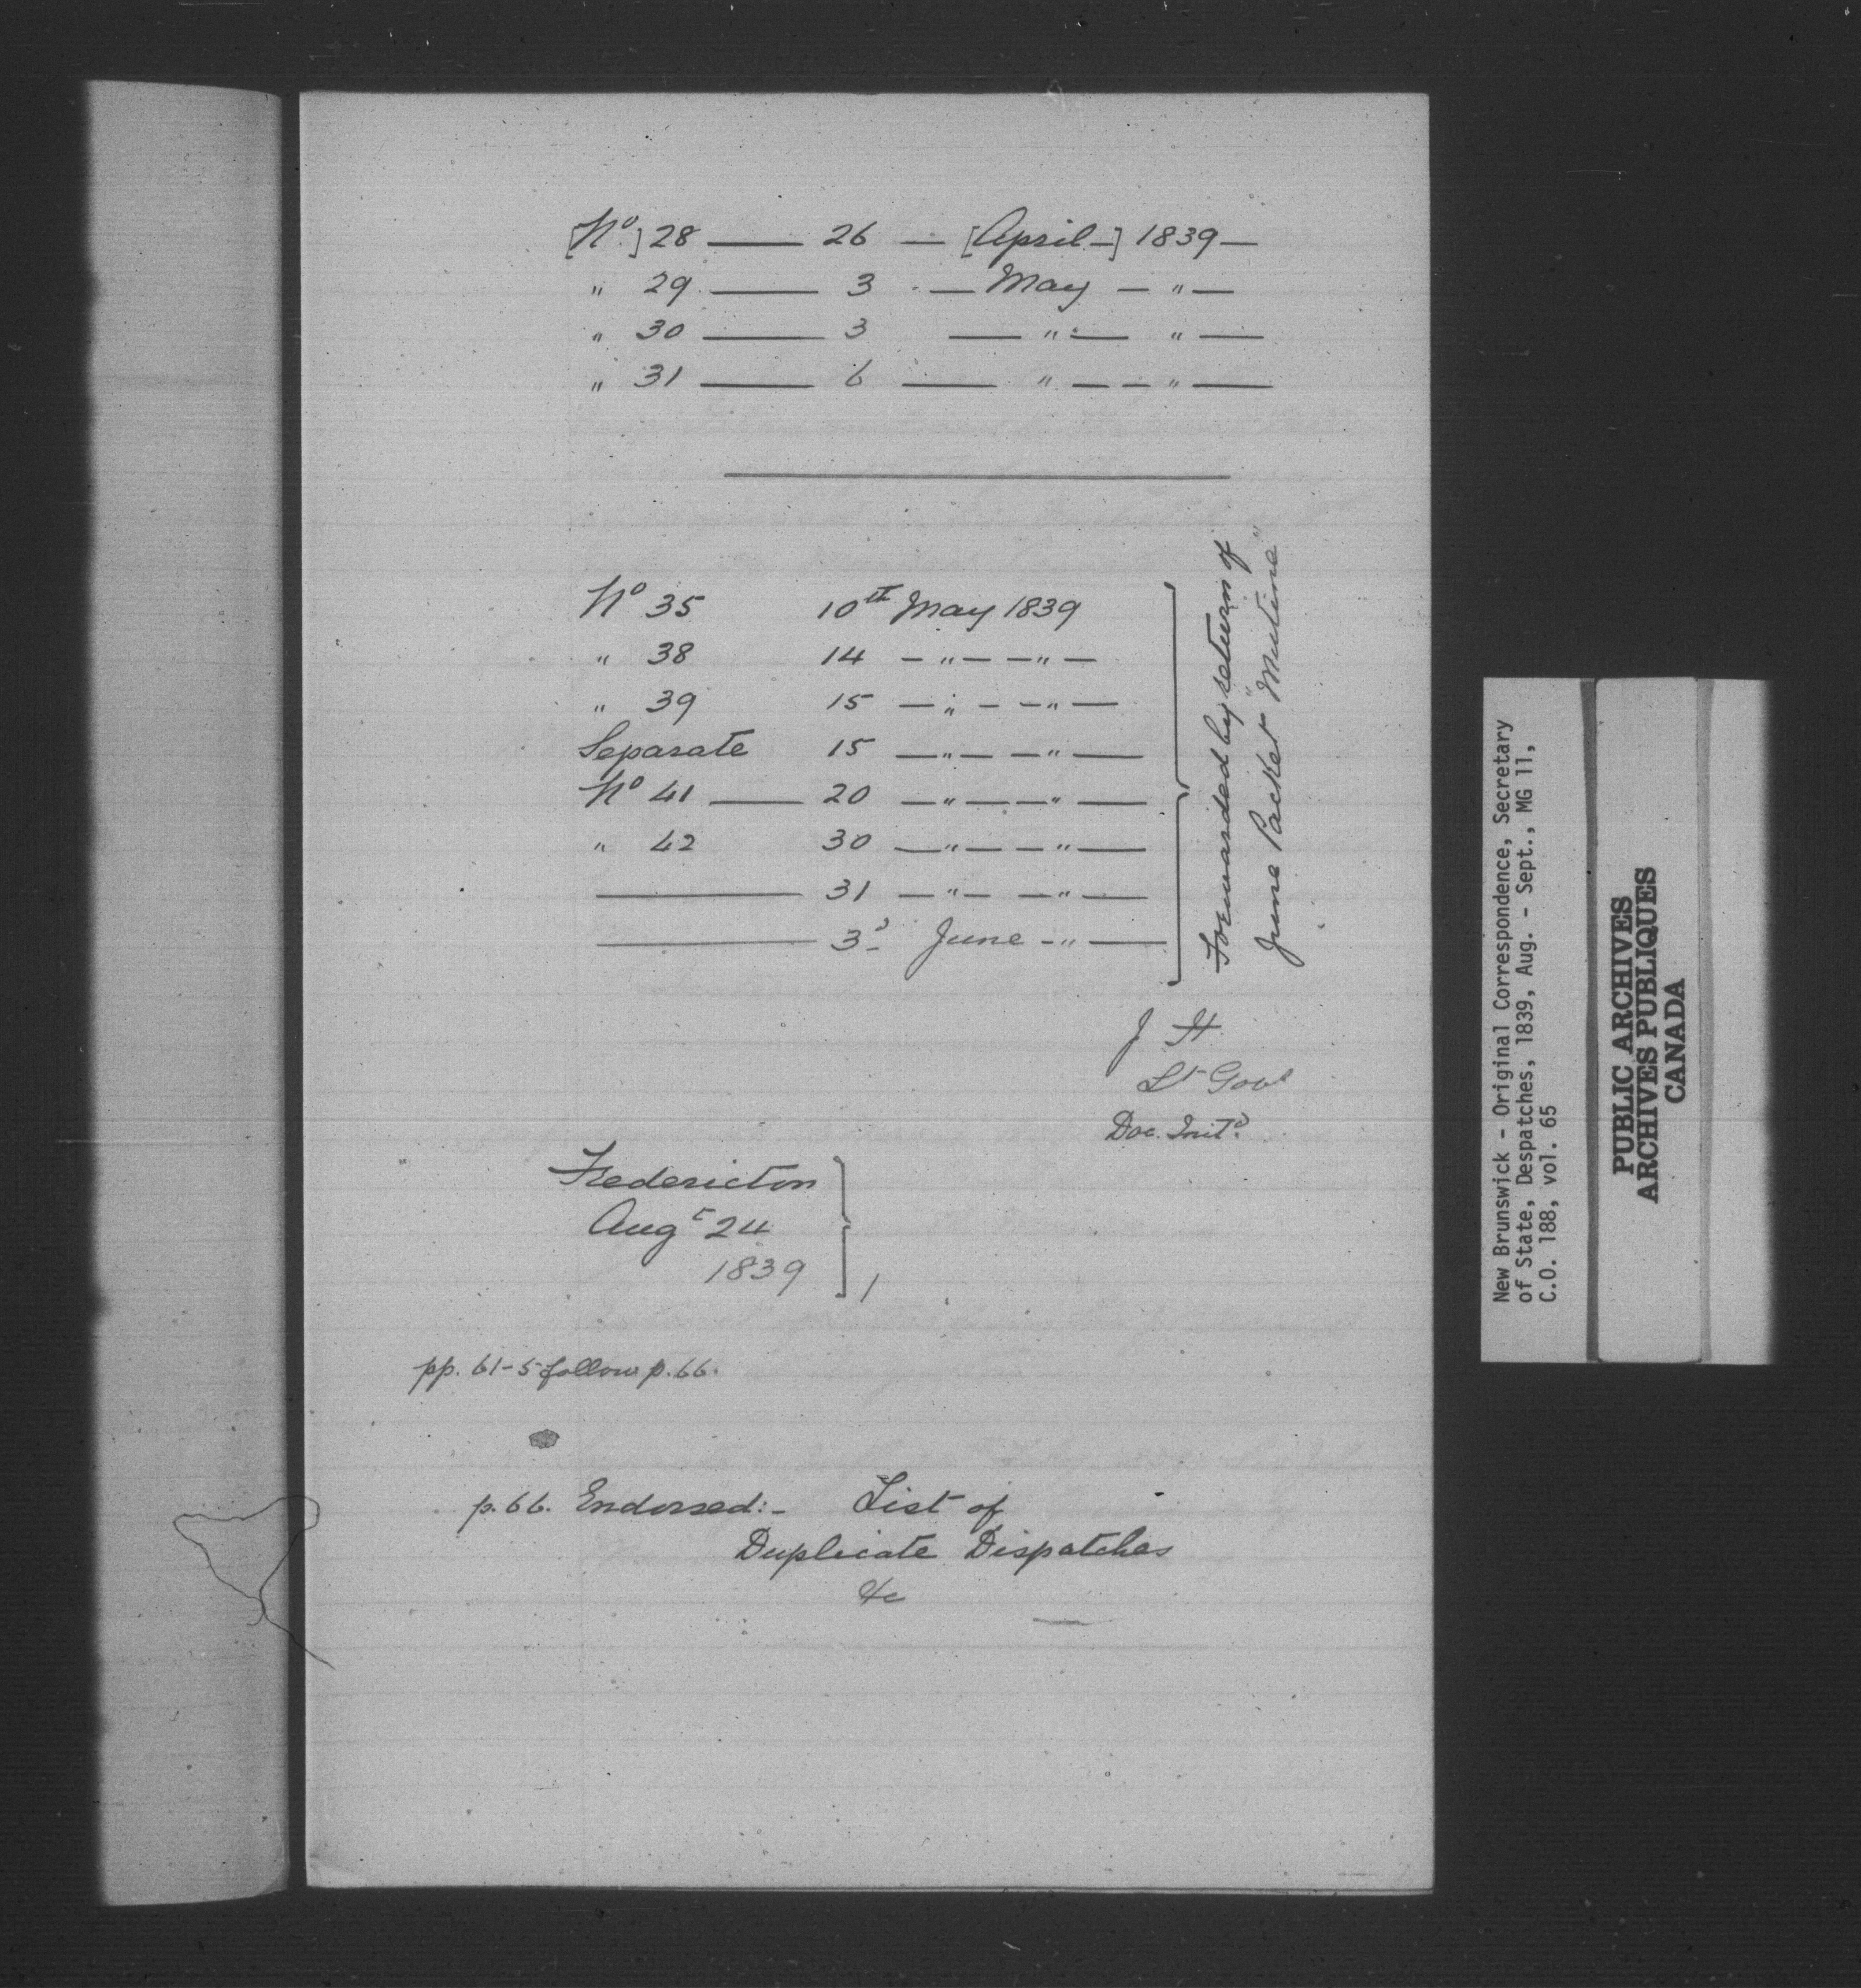 [No.] 28 — 26 — [April —] 1839 —
" 29 — 3 — May — " —
" 30 — 3 — " — " —
" 31 — 6 — " — — " —
No 35 10th May 1839
" 38 14 — " — — " —
" 39 15 — " — — " —
Separate 15 — " — — " —
No 41 — 20 — " — — " —
" 42 30 — " — — " —
— 31 — " — — " —
— 3d June — " —
Forwarded by return of
June Packet "Mutine"
J H
Lt Govr
Doc. Initd.
Fredericton
Augt 24
1839
pp. 61-5 follow p. 66.
p. 66. Endorsed:- List of
Duplicate Dispatches
&c
New Brunswick - Original Correspondence, Secretary
of State, Despatches, 1839, Aug. - Sept., MG 11,
C.O. 188, vol. 65
PUBLIC ARCHIVES
ARCHIVES PUBLIQUES
CANADA